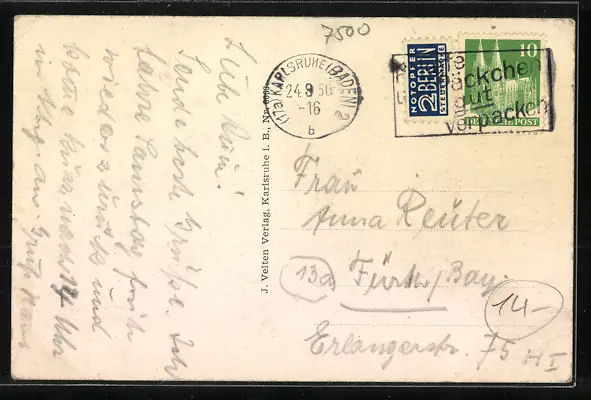 7500
Liebe Mimi!
Sende beste Grüße. Ich
fahre Samstag früh
wieder zurück und
komme kurz nach 17 Uhr
in Nbg an. Gruß Hans
J. Velten Verlag, Karlsruhe i. B., No.
(17a) KARLSRUHE (BADEN) 2
24.8.50
-16
b
NOTOPFER
2 BERLIN
STEUERMARKE
10
DEUTSCHE POST
Päckchen
gut
verpacken
Frau
Anna Reuter
13a Fürth/Bay.
Erlangerstr. 75
14-
H I